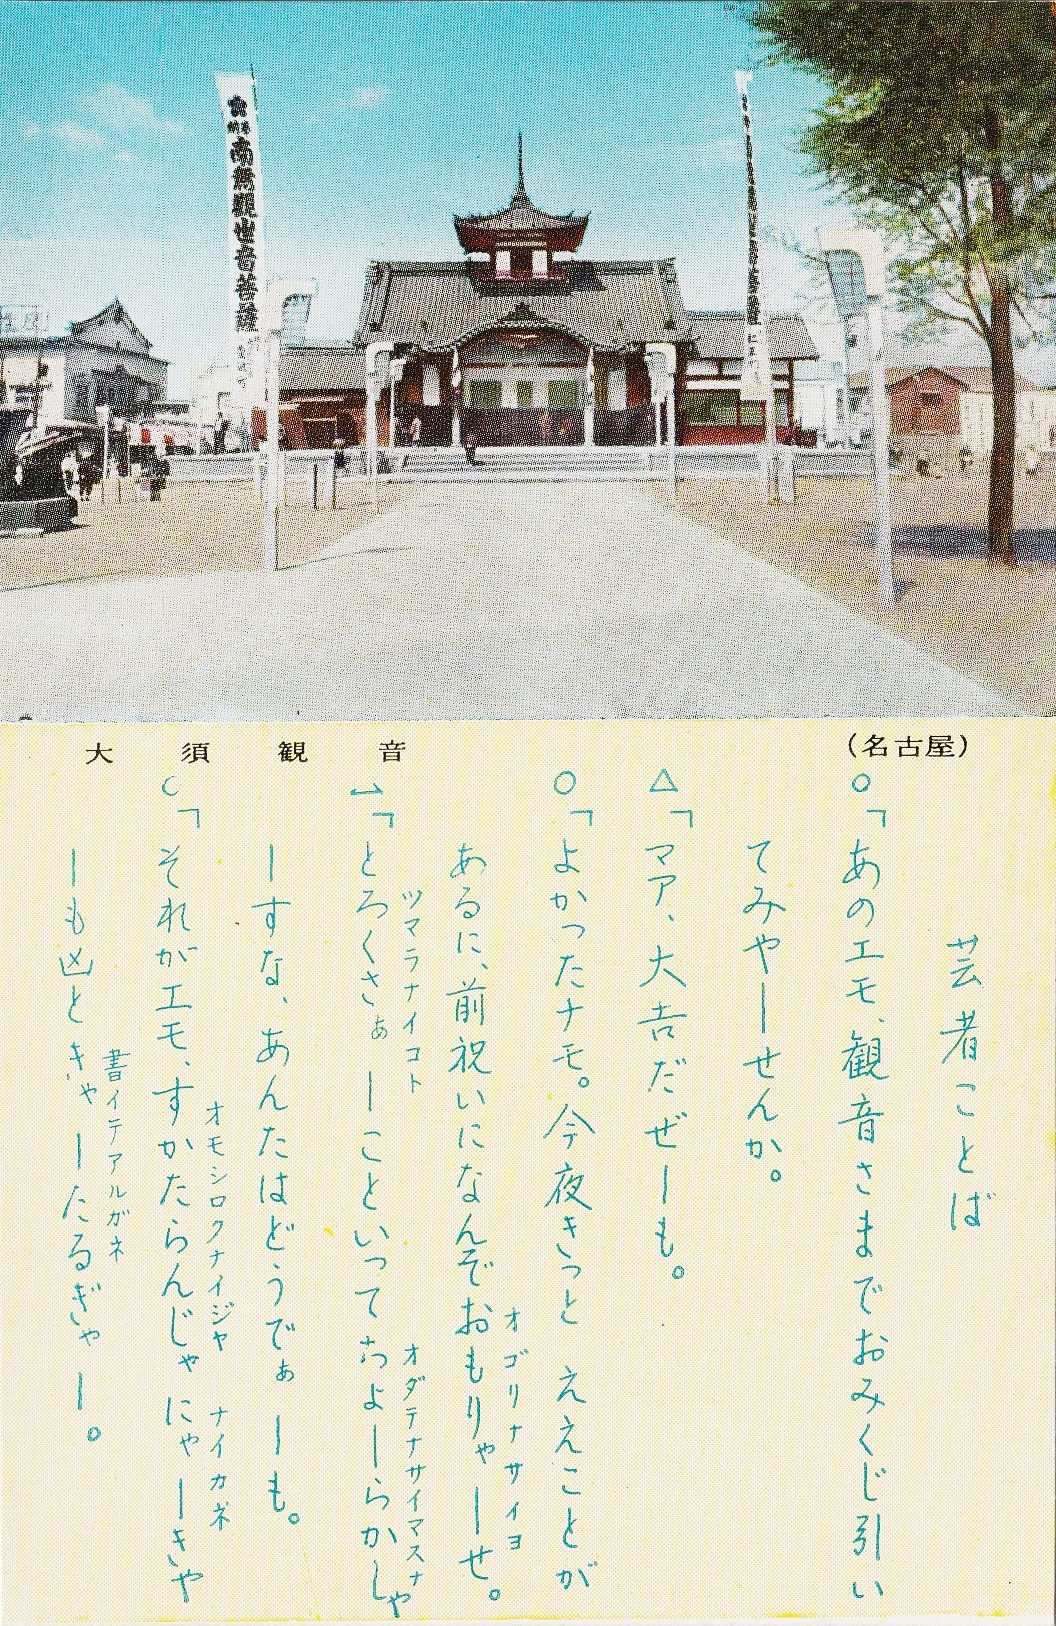 奉納 南無観世音菩薩
大須観音
(名古屋)
芸者ことば
○「あのエモ、観音さまでおみくじ引い
てみやーせんか。
△「マア、大吉だぜーも。
○「よかったナモ。今夜きっと ええことが
あるに、前祝いになんぞおもりゃーせ。
オゴリナサイヨ
△「とろくさぁーこといってちょーらかしゃ
ツマラナイコト
オダテナサイマスナ
ーすな、あんたはどうでぁーも。
○「それがエモ、すかたらんじゃにゃーきゃ
オモシロクナイジャ ナイカネ
ーも凶ときゃーたるぎゃー。
書イテアルガネ